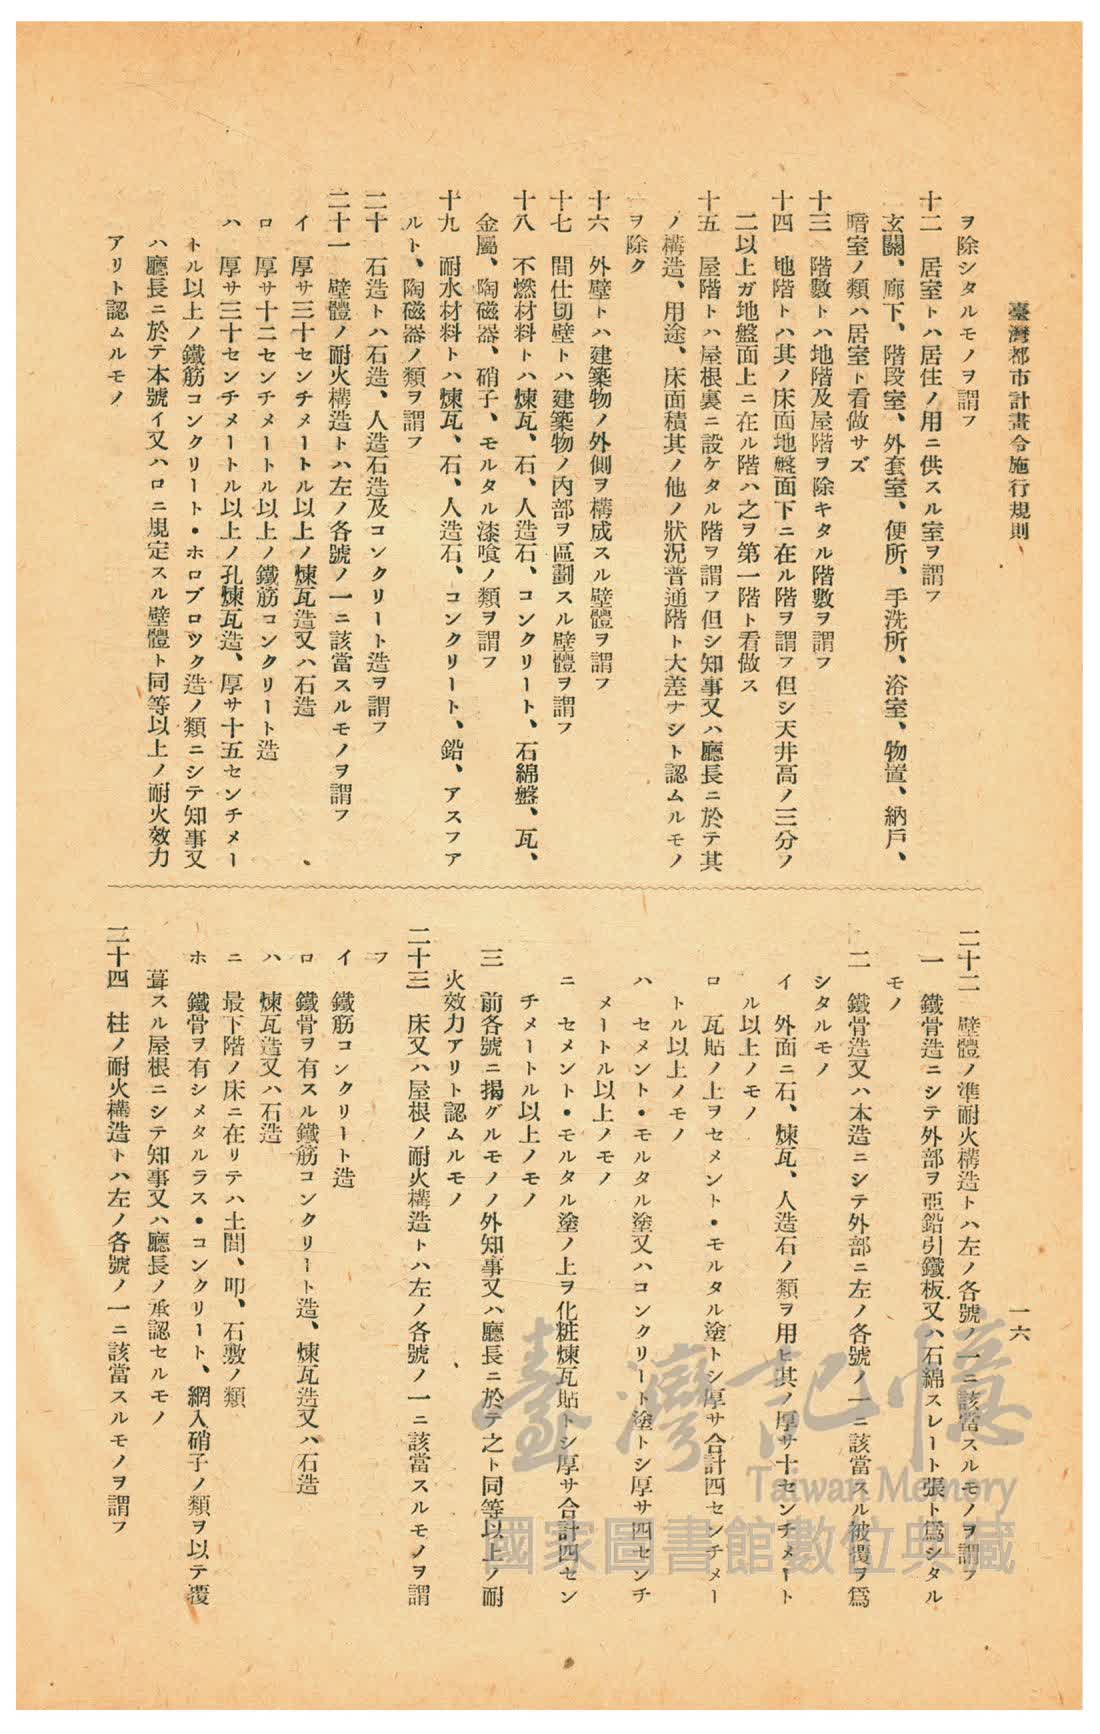 臺灣都市計畫令施行規則
一六
ヲ除シタルモノヲ謂フ
十二　居室トハ居住ノ用ニ供スル室ヲ謂フ
玄關、廊下、階段室、外套室、便所、手洗所、浴室、物置、納戶、
暗室ノ類ハ居室ト看做サズ
十三　階數トハ地階及屋階ヲ除キタル階數ヲ謂フ
十四　地階トハ其ノ床面地盤面下ニ在ル階ヲ謂フ但シ天井高ノ三分ノ
二以上ガ地盤面上ニ在ル階ハ之ヲ第一階ト看做ス
十五　屋階トハ屋根裏ニ設ケタル階ヲ謂フ但シ知事又ハ廳長ニ於テ其
ノ構造、用途、床面積其ノ他ノ狀況普通階ト大差ナシト認ムルモノ
ヲ除ク
十六　外壁トハ建築物ノ外側ヲ構成スル壁體ヲ謂フ
十七　間仕切壁トハ建築物ノ內部ヲ區劃スル壁體ヲ謂フ
十八　不燃材料トハ煉瓦、石、人造石、コンクリート、石綿盤、瓦、
金屬、陶磁器、硝子、モルタル漆喰ノ類ヲ謂フ
十九　耐水材料トハ煉瓦、石、人造石、コンクリート、鉛、アスファ
ルト、陶磁器ノ類ヲ謂フ
二十　石造トハ石造、人造石造及コンクリート造ヲ謂フ
二十一　壁體ノ耐火構造トハ左ノ各號ノ一ニ該當スルモノヲ謂フ
イ　厚サ三十センチメートル以上ノ煉瓦造又ハ石造
ロ　厚サ十二センチメートル以上ノ鐵筋コンクリート造
ハ　厚サ三十センチメートル以上ノ孔煉瓦造、厚サ十五センチメー
トル以上ノ鐵筋コンクリート・ホロブロツク造ノ類ニシテ知事又
ハ廳長ニ於テ本號イ又ハロニ規定スル壁體ト同等以上ノ耐火效力
アリト認ムルモノ
二十二　壁體ノ準耐火構造トハ左ノ各號ノ一ニ該當スルモノヲ謂フ
一　鐵骨造ニシテ外部ヲ亞鉛引鐵板又ハ石綿スレート張ト爲シタル
モノ
二　鐵骨造又ハ木造ニシテ外部ニ左ノ各號ノ一ニ該當スル被覆ヲ爲
シタルモノ
イ　外面ニ石、煉瓦、人造石ノ類ヲ用ヒ其ノ厚サ十センチメート
ル以上ノモノ
ロ　瓦貼ノ上ヲセメント・モルタル塗トシ厚サ合計四センチメー
トル以上ノモノ
ハ　セメント・モルタル塗又ハコンクリート塗トシ厚サ四センチ
メートル以上ノモノ
ニ　セメント・モルタル塗ノ上ヲ化粧煉瓦貼トシ厚サ合計四セン
チメートル以上ノモノ
三　前各號ニ揭グルモノノ外知事又ハ廳長ニ於テ之ト同等以上ノ耐
火效力アリト認ムルモノ
二十三　床又ハ屋根ノ耐火構造トハ左ノ各號ノ一ニ該當スルモノヲ謂
フ
イ　鐵筋コンクリート造
ロ　鐵骨ヲ有スル鐵筋コンクリート造、煉瓦造又ハ石造
ハ　煉瓦造又ハ石造
ニ　最下階ノ床ニ在リテハ土間、叩、石敷ノ類
ホ　鐵骨ヲ有シメタルラス・コンクリート、網入硝子ノ類ヲ以テ覆
葺スル屋根ニシテ知事又ハ廳長ノ承認セルモノ
二十四　柱ノ耐火構造トハ左ノ各號ノ一ニ該當スルモノヲ謂フ
臺灣記憶
Taiwan Memory
國家圖書館數位典藏